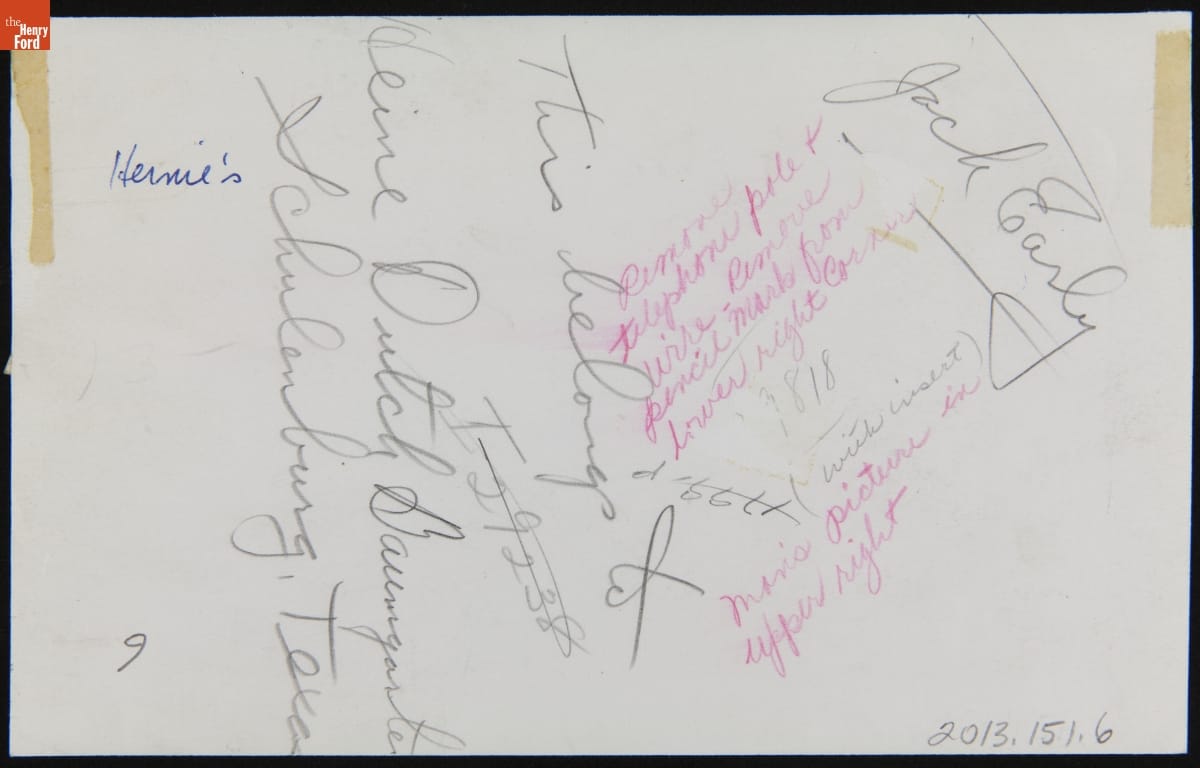 the
Henry
Ford
Hernie's
Jack Early
This belongs to
Heine Dutch Baumgarte
Schulenburg, Texa
Remove
telephone pole +
wire Remove
pencil mark from
lower right corner
3818
(with insert)
man's picture in
upper right
9
2013.151.6